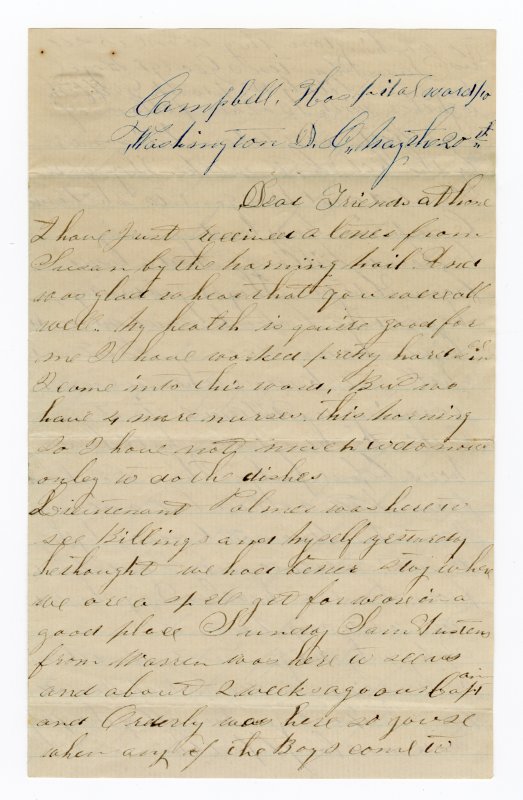 Campbell, Hospital ward 10
Washington D. C., May the 20th
Dear Friends at home
I have Just received a letter from
Susan by the morning mail. And
was glad to hear that you were all
well. My health is quite good for
me I have worked pretty hard
I come into this ward, But we
have 4 more nurses this morning
so I have not much to do now
onley to do the dishes
Lieutenant Palmer was here to
see Billings and myself yesturday
he thought we had better stay where
we are a spell yet for we are in a
good place Sunday Sam
from Warren was here to see us
and about 2 weeks ago our Captain
and Orderly was here so you se
when any of the Boys come to